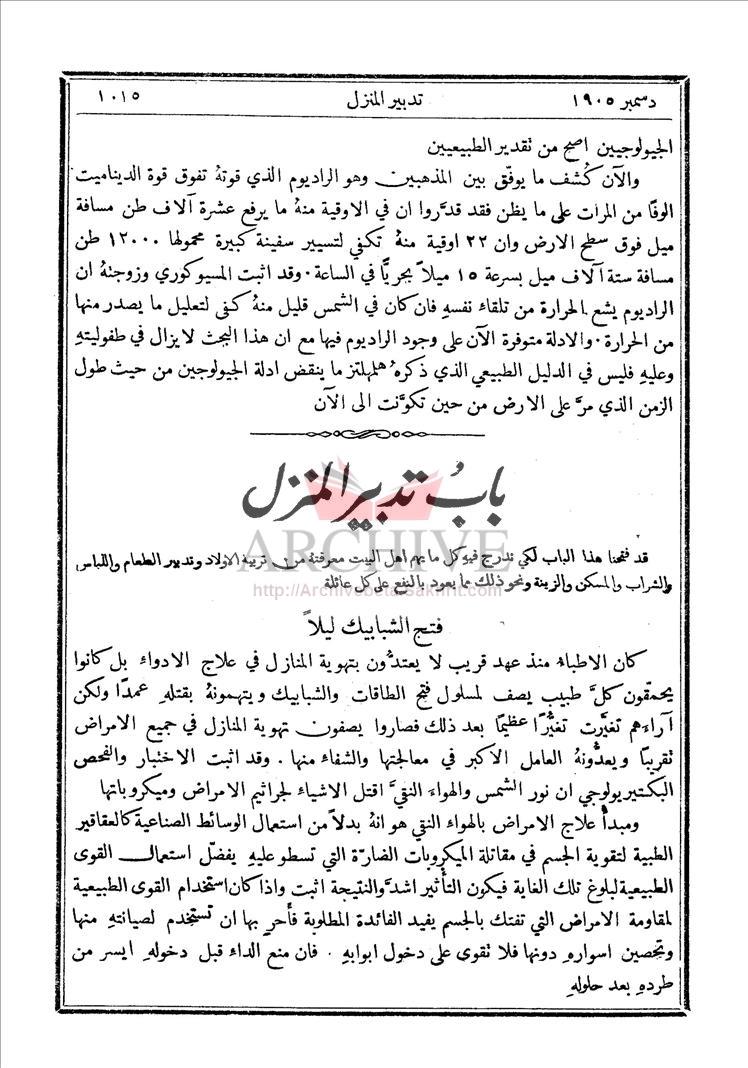 دسمبر ١٩٠٥ تدبير المنزل ١٠١٥
الجيولوجيين اصح من تقدير الطبيعيين
والآن كُشف ما يوفّق بين المذهبين وهو الراديوم الذي قوتهُ تفوق قوة الديناميت
الوفًا من المرات على ما يظن فقد قدَّروا ان في الاوقية منهُ ما يرفع عشرة آلاف طن مسافة
ميل فوق سطح الارض وان ٢٢ اوقية منهُ تكفي لتسيير سفينة كبيرة محمولها ١٢٠٠٠ طن
مسافة ستة آلاف ميل بسرعة ١٥ ميلاً بحريًّا في الساعة. وقد اثبت المسيو كوري وزوجتهُ ان
الراديوم يشع الحرارة من تلقاء نفسهِ فان كان في الشمس قليل منهُ كفى لتعليل ما يصدر منها
من الحرارة. والادلة متوفرة الآن على وجود الراديوم فيها مع ان هذا البحث لا يزال في طفوليتهِ
وعليهِ فليس في الدليل الطبيعي الذي ذكرهُ هلمهلتز ما ينقض ادلة الجيولوجين من حيث طول
الزمن الذي مرَّ على الارض من حين تكوَّنت الى الآن
بابُ تدبير المنزل
ARCHIVE
قد فتحنا هذا الباب لكي ندرج فيهِ كل ما يهم اهل البيت معرفتهُ من تربية الاولاد وتدبير الطعام واللباس
والشراب والمسكن والزينة ونحو ذلك مما يعود بالنفع على كل عائلة
http://Archivebeta.Sakhrit.com
فتح الشبابيك ليلاً
كان الاطباء منذ عهد قريب لا يعتدُّون بتهوية المنازل في علاج الادواء بل كانوا
يحمّقون كلَّ طبيب يصف لمسلول فتح الطاقات والشبابيك ويتهمونهُ بقتلهِ عمدًا ولكن
آراءهم تغيَّرت تغيُّرًا عظيمًا بعد ذلك فصاروا يصفون تهوية المنازل في جميع الامراض
تقريبًا ويعدُّونهُ العامل الاكبر في معالجتها والشفاء منها. وقد اثبت الاختبار والفحص
البكتيريولوجي ان نور الشمس والهواء النقيَّ اقتل الاشياء لجراثيم الامراض وميكروباتها
ومبدأُ علاج الامراض بالهواء النقي هو انهُ بدلاً من استعمال الوسائط الصناعية كالعقاقير
الطبية لتقوية الجسم في مقاتلة الميكروبات الضارّة التي تسطو عليهِ يفضّل استعمال القوى
الطبيعية لبلوغ تلك الغاية فيكون التأثير اشدَّ والنتيجة اثبت واذا كان استخدام القوى الطبيعية
لمقاومة الامراض التي تفتك بالجسم يفيد الفائدة المطلوبة فأَحرِ بها ان تُستخدم لصيانتهِ منها
وتحصين اسوارهِ دونها فلا تقوى على دخول ابوابهِ. فان منع الداء قبل دخولهِ ايسر من
طردهِ بعد حلولهِ